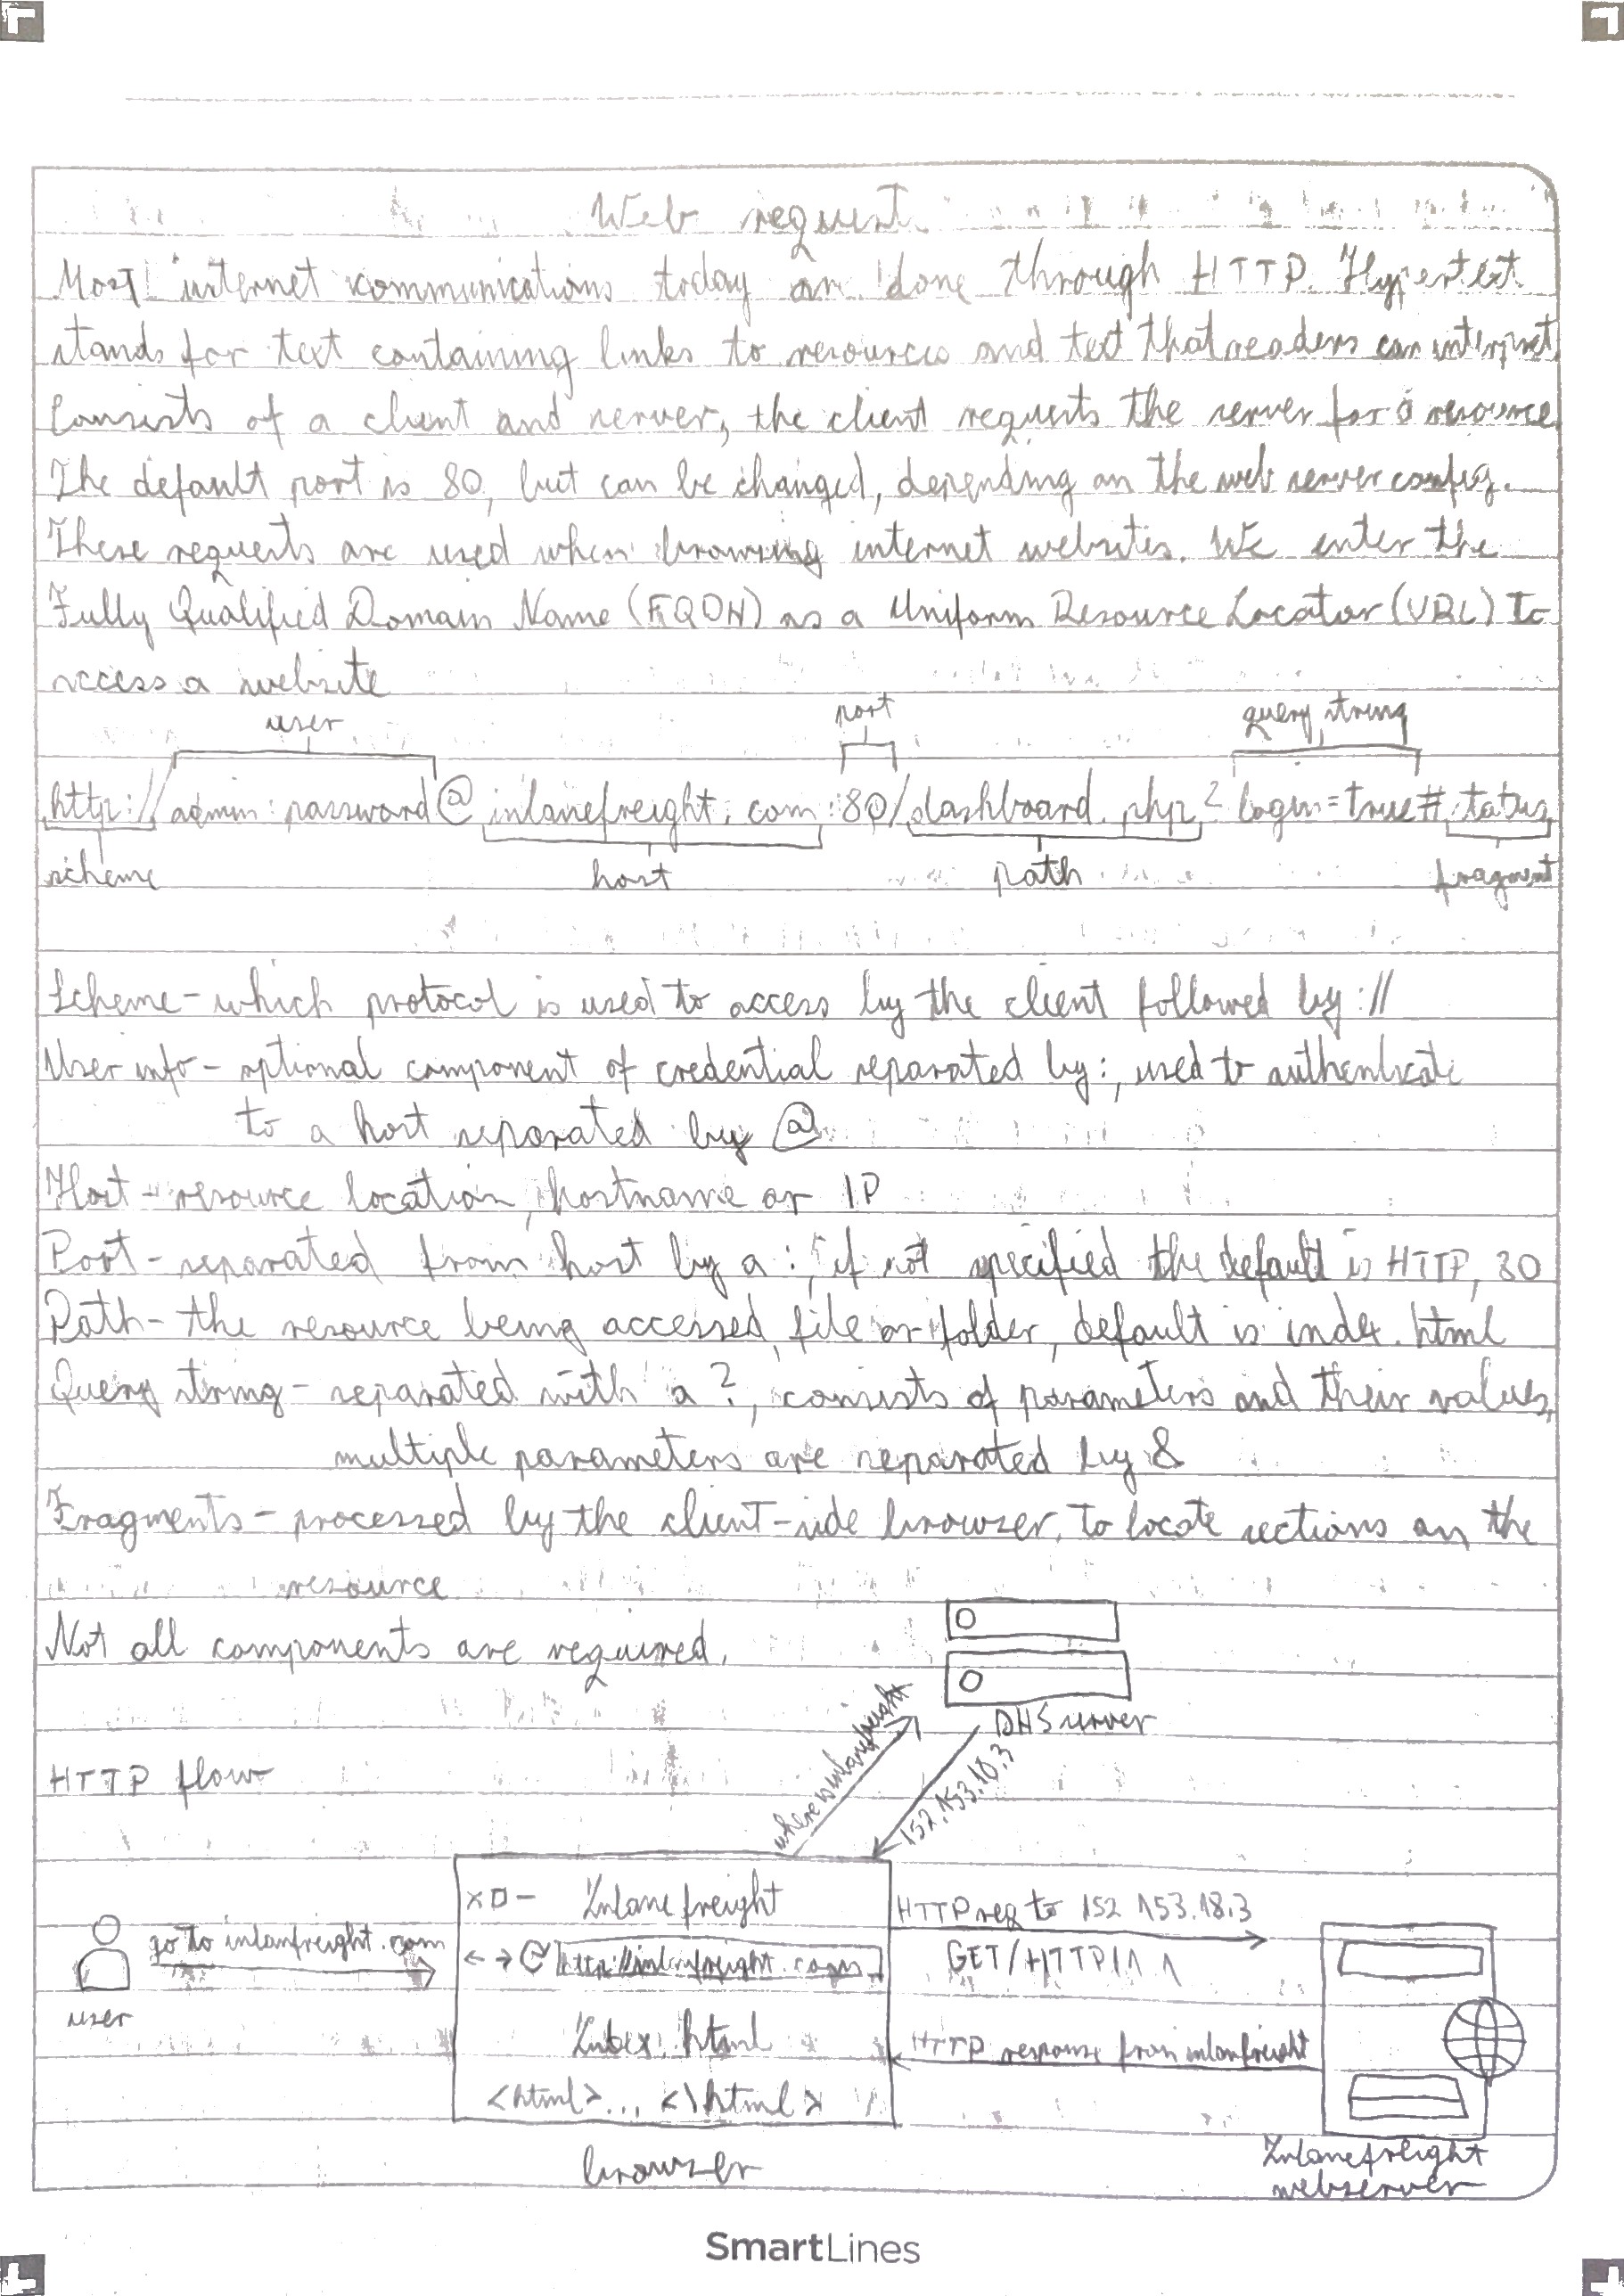 Web request
Most internet communications today are done through HTTP. Hypertext
stands for text containing links to resources and text that readers can interpret.
Consists of a client and server, the client requests the server for a resource.
The default port is 80, but can be changed, depending on the web server config.
These requests are used when browsing internet websites. We enter the
Fully Qualified Domain Name (FQDN) as a Uniform Resource Locator (URL) to
access a website
user port query string
http://admin:password@inlanefreight.com:80/dashboard.php?login=true#status
scheme host path fragment
Scheme - which protocol is used to access by the client followed by ://
User info - optional component of credential separated by :, used to authenticate
to a host separated by @
Host - resource location, hostname or IP
Port - separated from host by a :, if not specified the default is HTTP, 80
Path - the resource being accessed, file or folder, default is index.html
Query string - separated with a ?, consists of parameters and their values,
multiple parameters are separated by &
Fragments - processed by the client-side browser, to locate sections on the
resource
Not all components are required.
DNS server
where is inlanefreight
152.153.18.3
HTTP flow
x □ - Inlanefreight
HTTP req to 152.153.18.3
go to inlanfreight.com
← → http://inlanfreight.com
GET/HTTP/1.1
user
Index.html
HTTP response from inlanfreight
<html>...<\html>
browser
Inlanefreight
webserver
SmartLines